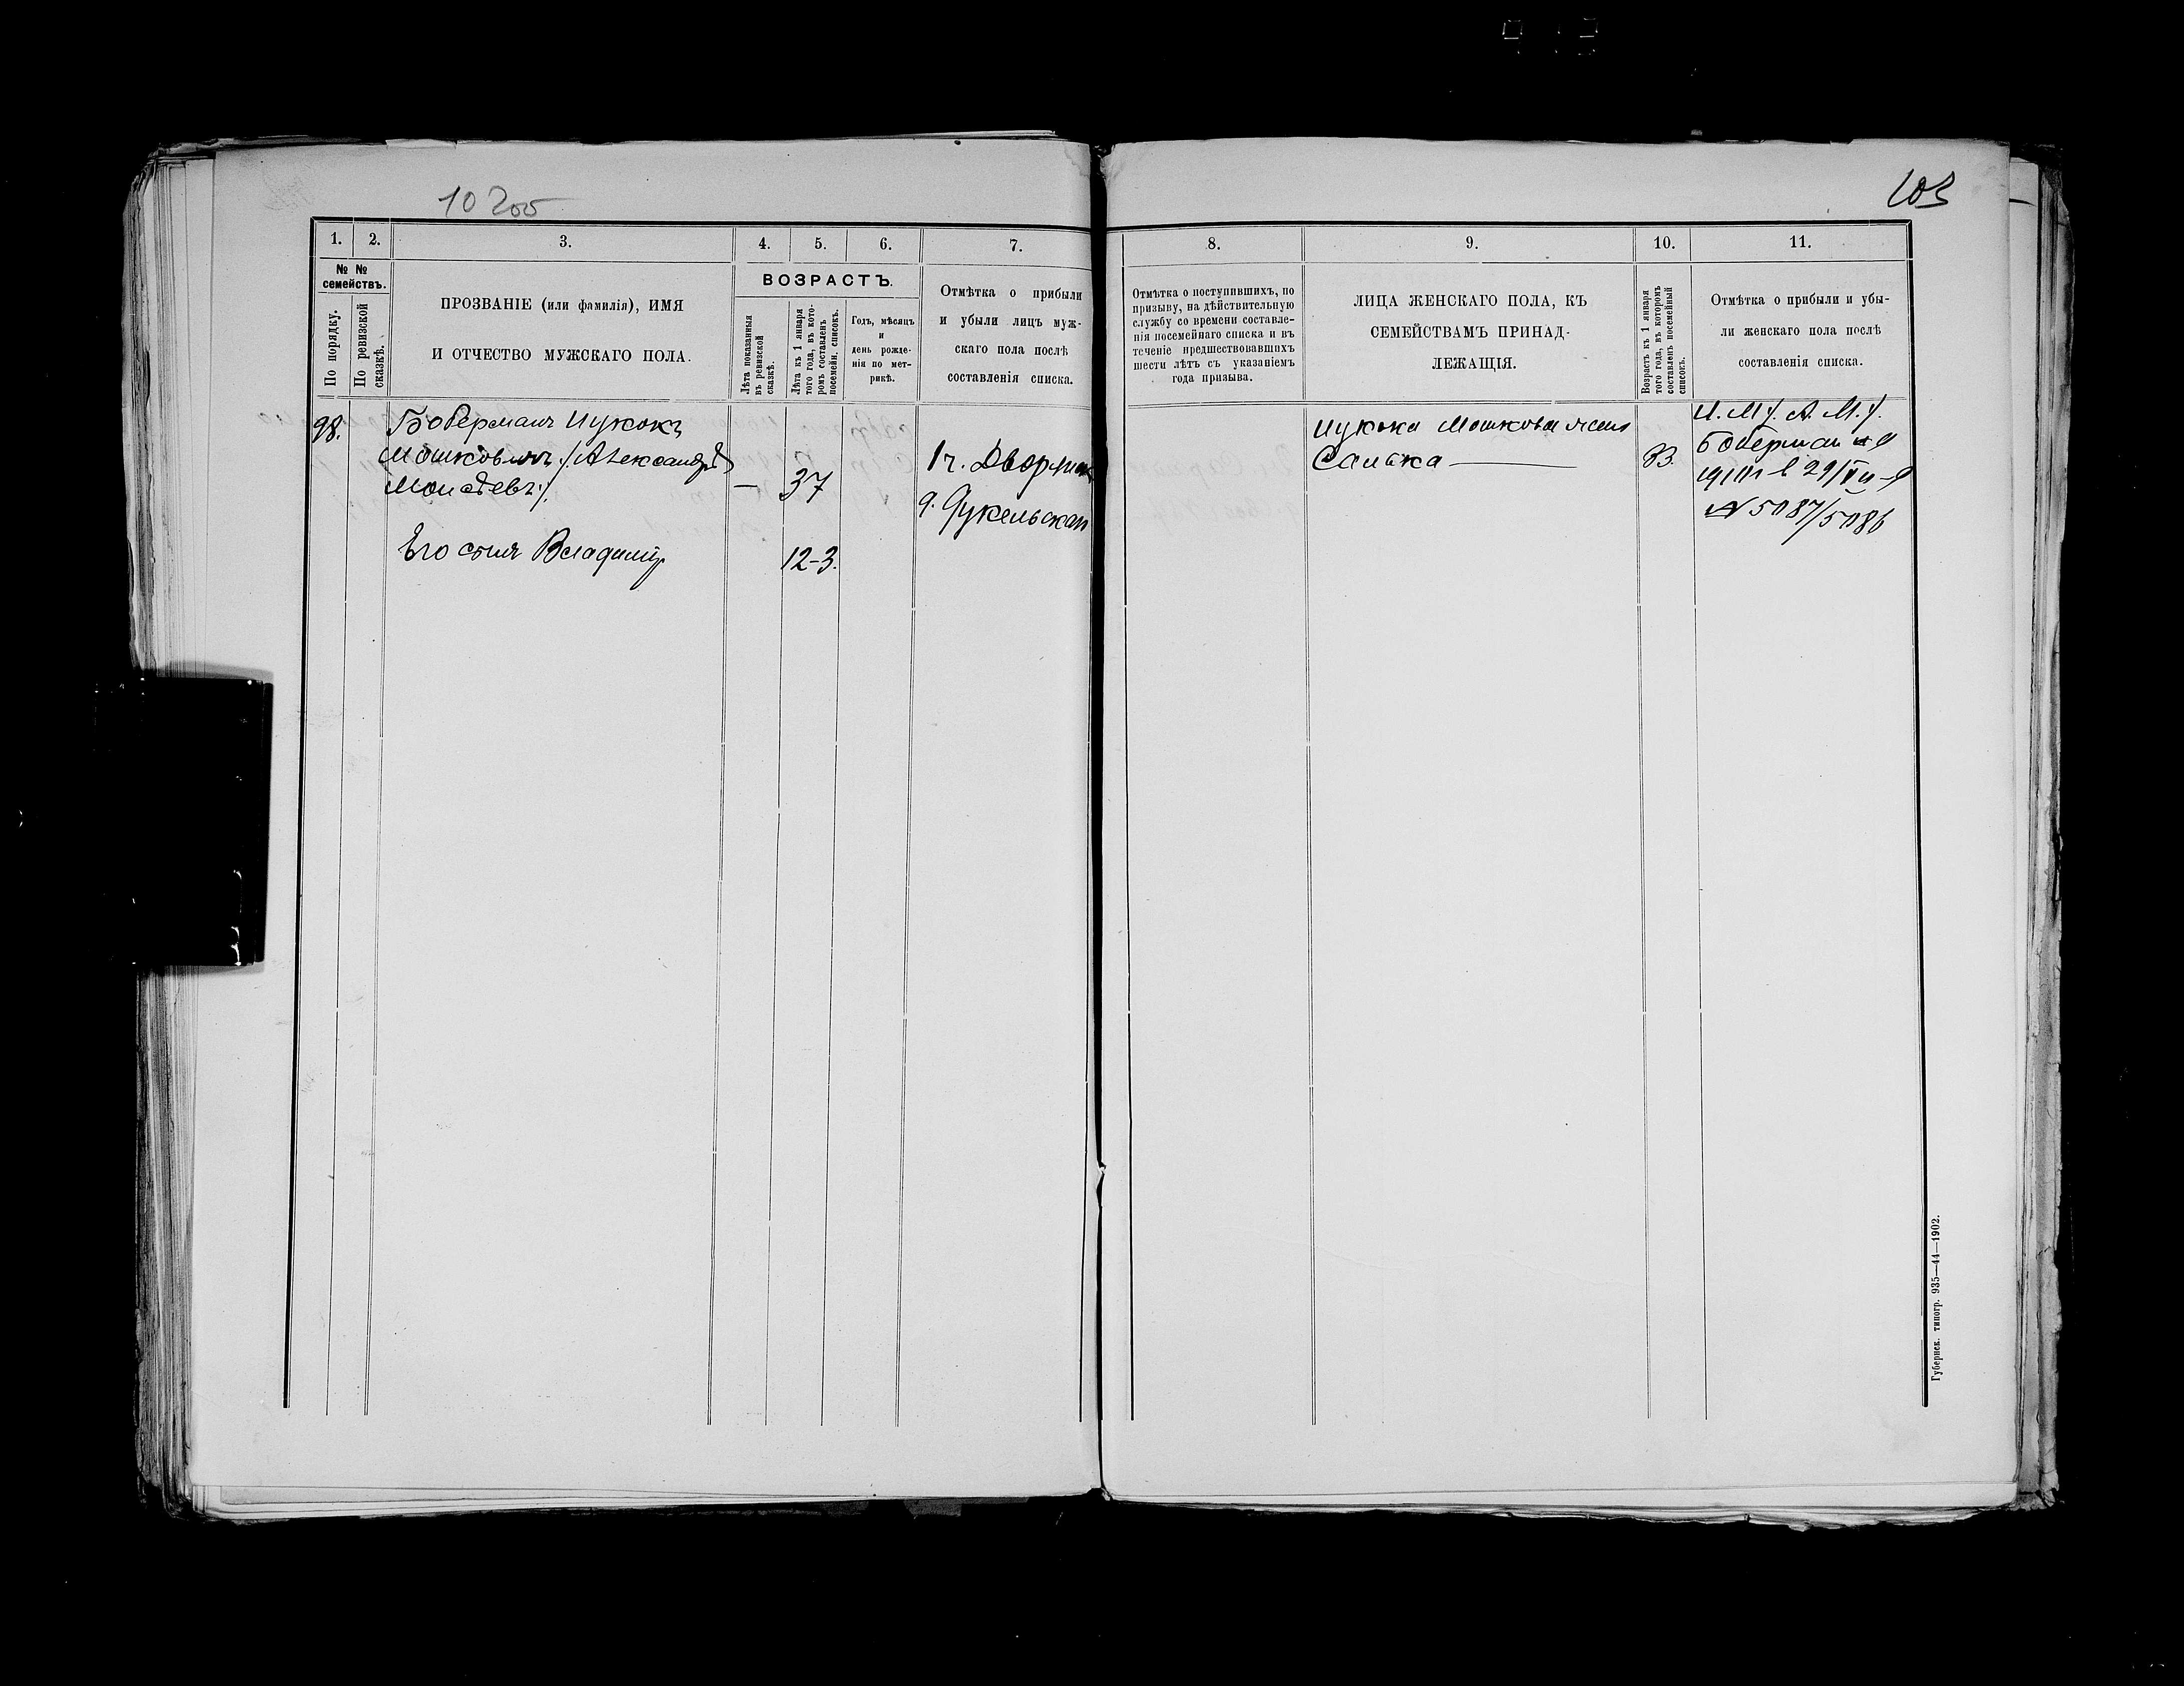 10 200
103
1. 2. 3. 4. 5. 6. 7.
№ №
семействъ.
По порядку.
По ревизской
сказкѣ.
ПРОЗВАНІЕ (или фамилія), ИМЯ
И ОТЧЕСТВО МУЖСКАГО ПОЛА.
ВОЗРАСТЪ.
Лѣта показанныя
въ ревизской
сказкѣ.
Лѣта къ 1 января
того года, въ кото-
ромъ составленъ
посемейн. списокъ.
Годъ, мѣсяцъ
и
день рожде-
нія по мет-
рикѣ.
Отмѣтка о прибыли
и убыли лицъ муж-
скаго пола послѣ
составленія списка.
98.
Боберманъ Цукокъ
Мошковичъ /:Александръ
Моисѣевъ:/
— 37
1 ч. Дворянск
д. Дукельская
Его сынъ Владиміръ
12-3.
8. 9. 10. 11.
Отмѣтка о поступившихъ, по
призыву, на дѣйствительную
службу со времени составле-
нія посемейнаго списка и въ
теченіе предшествовавшихъ
шести лѣтъ съ указаніемъ
года призыва.
ЛИЦА ЖЕНСКАГО ПОЛА, КЪ
СЕМЕЙСТВАМЪ ПРИНАД-
ЛЕЖАЩІЯ.
Возрастъ къ 1 января
того года, въ которомъ
составленъ посемейный
списокъ.
Отмѣтка о прибыли и убы-
ли женскаго пола послѣ
составленія списка.
Цукока Мошкова жена
Сал̶ька
33.
Ц. М /. А. М. /.
Боберман
№ 5087/5086
Губернск. типогр. 935—44—1902.